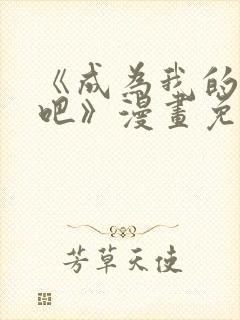 《成为我的
吧》漫畫免
芳草天使